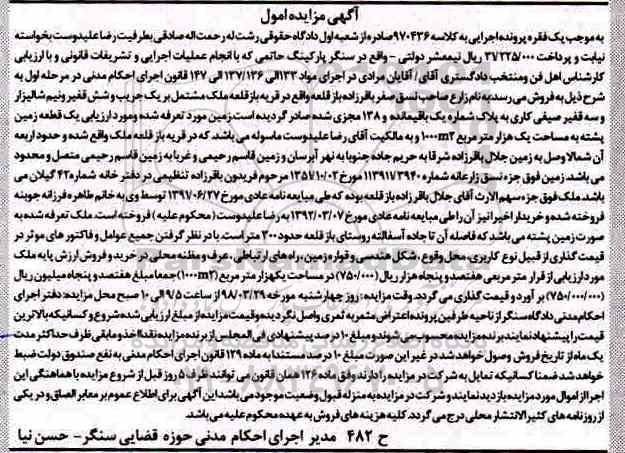 آگهی مزایده اموال
به موجب یک فقره پرونده اجرایی به کلاسه ۹۷۰۴۳۶ صادره از شعبه اول دادگاه حقوقی رشت له رحمت اله صادقی بطرفیت رضا علیدوست بخواسته
نیابت و پرداخت ۳۷/۳۲۵/۰۰۰ ریال نیمعشر دولتی - واقع در سنگر پارکینگ حاتمی که با انجام عملیات اجرایی و تشریفات قانونی و با ارزیابی
کارشناس اهل فن ومنتخب دادگستری آقای/ آقایان مرادی در اجرای مواد ۱۳۳الی ۱۳۷/۱۲۶ الی ۱۴۷ قانون اجرای احکام مدنی در مرحله اول به
شرح ذیل به فروش می رسد:به نام زارع صاحب نسق صفر باقرزاده باز قلعه واقع در قریه باز قلعه ملک مشتمل بر یک جریب و شش قفیز ونیم شالیزار
و سه قفیر صیفی کاری به پلاک شماره یک باقیمانده و ۱۳۸ مجزی شده صادر گردیده است.زمین مورد تعرفه شده ومورد ارزیابی یک قطعه زمین
پشته به مساحت یک هزار متر مربع ۱۰۰۰m۲ و به مالکیت آقای رضا علیدوست ماسوله می باشد. که در قریه باز قلعه ملک واقع شده و حدود اربعه
آن شمالا وصل به زمین جلال باقرزاده شرقا به حریم جاده جنوبا به نهر آبرسان و زمین قاسم رحیمی و غربا به زمین قاسم رحیمی متصل و محدود
می باشد. زمین فوق جزء نسق زارعانه شماره ۱۱۳۹۱۷۳۹۴۰ مورخ ۱۳۵۷/۱۰/۰۲ مرحوم فریدون باقرزاده تنظیمی در دفتر خانه شماره ۴۲ گیلان می
باشد. ملک فوق جزء سهم الارث آقای جلال باقرزاده باز قلعه بوده که طی مبایعه نامه عادی مورخ ۱۳۹۷/۰۶/۲۷ توسط وی به خانم طاهره فرزانه جوینه
فروخته شده و خریدار اخیر انیز آن را طی مبایعه نامه عادی مورخ ۱۳۹۲/۰۳/۰۷ به رضا علیدوست (محکوم علیه) فروخته است. ملک تعرفه شده به
صورت زمین پشته می باشد که فاصله آن تا جاده آسفالته روستای باز قلعه حدود ۳۰۰ متر است.با در نظر گرفتن جمیع عوامل و فاکتور های موثر در
قیمت گذاری از قبیل نوع کاربری، محل وقوع ،شکل هندسی و قواره زمین ، راه های ارتباطی ، عرف و مظنه محلی در خرید و فروش ارزش پایه ملک
مورد ارزیابی از قرار متر مربعی هفتصد و پنجاه هزار ریال (۷۵۰/۰۰۰) در مساحت یکهزار متر مربع (۱۰۰۰m۲) جمعا مبلغ هفتصد و پنجاه میلیون ریال
(۷۵۰/۰۰۰/۰۰۰) بر آورد و قیمت گذاری می گردد. وقت مزایده : روز چهارشنبه مورخه ۹۸/۰۳/۲۹ از ساعت ۹/۵ الی ۱۰ صبح محل مزایده: دفتر اجرای
احکام مدنی دادگاه سنگر از ناحیه طرفین پرونده اعتراض مثمر به ثمری واصل نگردیده و قیمت مزایده از مبلغ ارزیابی شده شروع و کسانیکه بالاترین
قیمت را پیشنهاد نمایند برنده مزایده محسوب می شوند و مبلغ ۱۰ درصد پیشنهادی فی المجلس از برنده مزایده نقدا اخذ و مابقی ظرف حداکثر مدت
یک ماه از تاریخ فروش وصول خواهد شد در غیر این صورت مبلغ ۱۰ درصد مستندا به ماده ۱۲۹ قانون اجرای احکام مدنی به نفع صندوق دولت ضبط
خواهد شد ضمنا کسانیکه تمایل به شرکت در مزایده را دارند وفق ماده ۱۲۶ همان قانون می توانند ظرف ۵ روز قبل از شروع مزایده با هماهنگی این
اجرا از اموال مورد مزایده بازدید نمایند و شرکت در مزایده به منزله قبول وضعیت موجود می باشد این آگهی برای اطلاع عموم بر معابر الصاق و در یکی
از روزنامه های کثیر الانتشار محلی درج می گردد. کلیه هزینه های فروش به عهده محکوم علیه می باشد.
ح ۴۸۲ مدیر اجرای احکام مدنی حوزه قضایی سنگر- حسن نیا